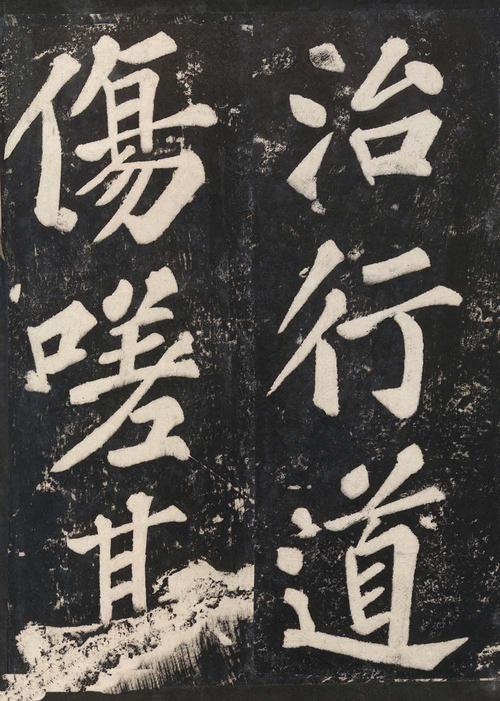 治行道
傷嗟